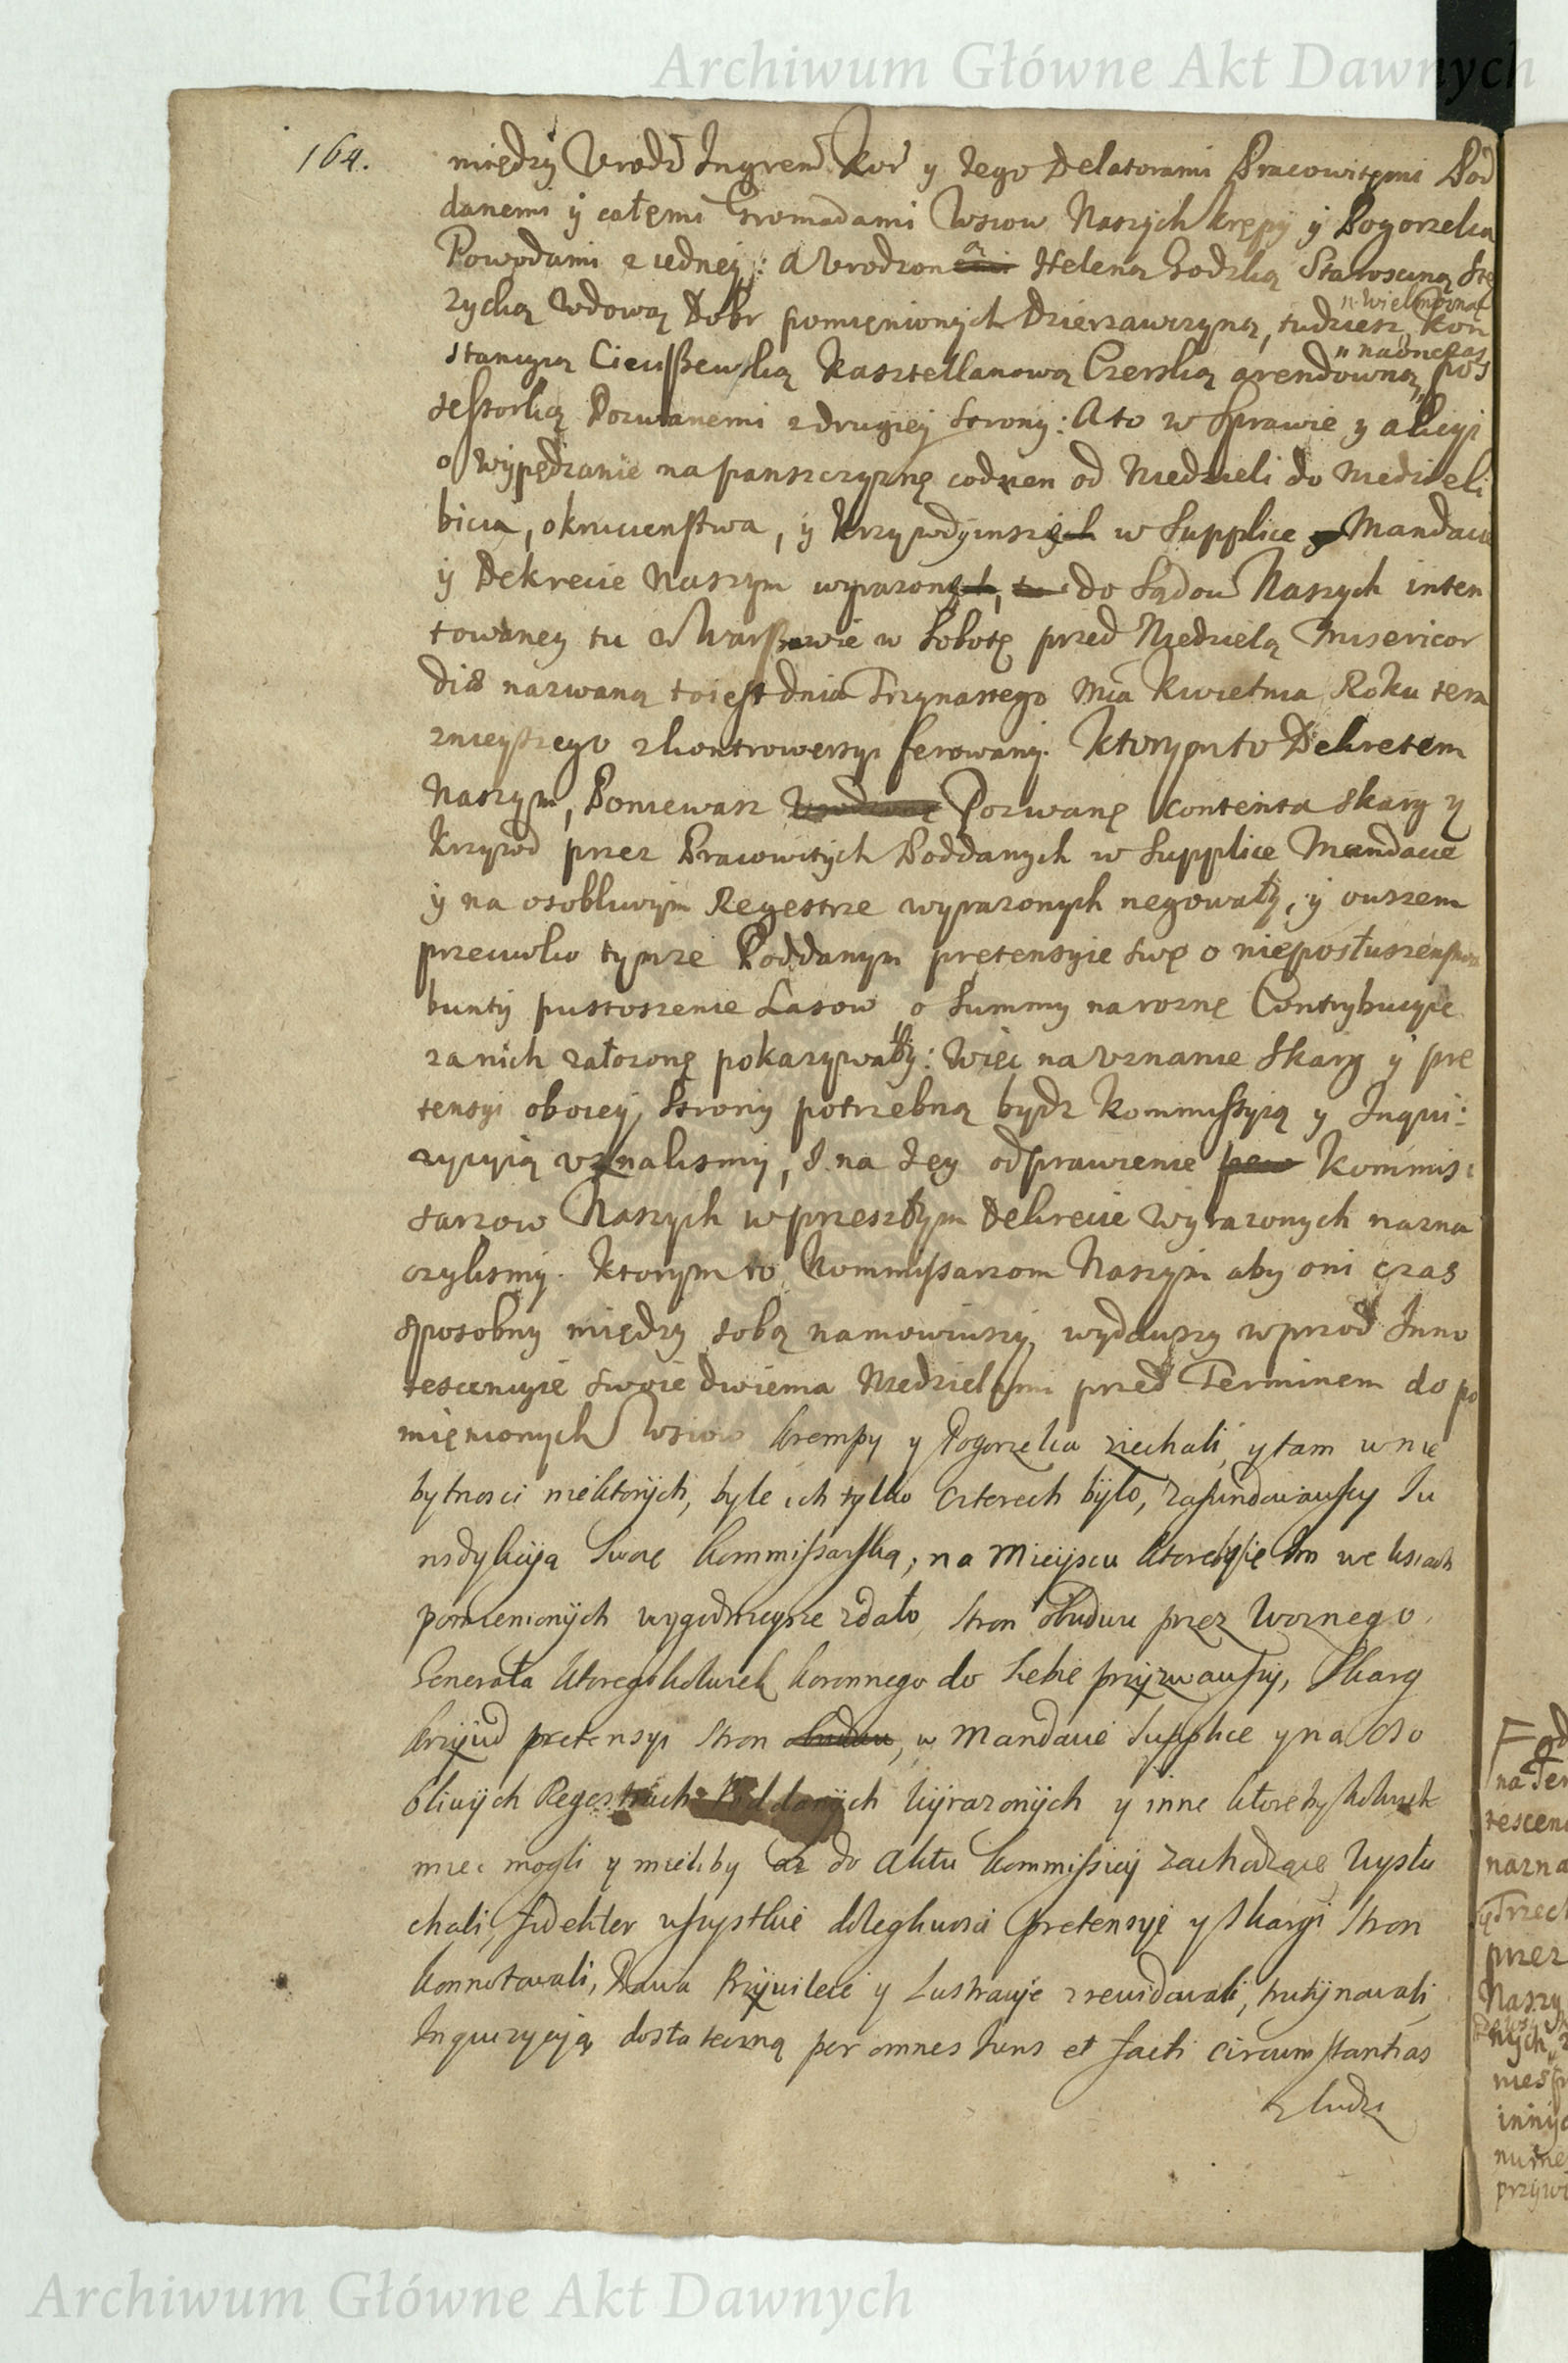 Archiwum Główne Akt Dawnych
164.
między Urodz Ingrem Kor y Jego Delatorami Pracowitęmi Pod
danemi ÿ całęmi Gromadami Wsiow Naszÿch Krępÿ ÿ Pogorzelca
Powodami z iedneÿ: a Urodzoną Heleną Godzką Starosciną Stę
zycką Wdową Dobr pomięnionych Dzierzawczyną, tudziesz Wielmozną Kon
stancyą Cieciszewską Kasztellanową Czerską arendowną naonczas pos
sessorką Pozwanemi z drugieÿ strony: A to w Sprawie y akcyi
o wÿpędzanie na panszczyznę codzien od Niedzieli do Niedzieli
bicia, okrucienstwa, ÿ krzywdÿ inszę w Supplice Mandacie
ÿ Dekrecie Naszym wyrazonę do Sądow Naszych inten
towaney tu w Warszawie w Sobotę przed Niedzielą Misericor
dia nazwaną to iest dnia Trzynastego Mca Kwietnia Roku tera
znieyszego z kontrowersyi ferowanÿ. Ktorym to Dekretem
Naszym, Poniewasz Pozwanę contenta skarg y
krzywd przez Pracowitÿch Poddanych w Supplice Mandacie
ÿ na osobliwÿm Regestrze wyrazonych negowałÿ, ÿ owszem
przeciwko tymze Poddanym pretensyie swę o nieposłuszenstwa
buntÿ pustoszenie Lasow o Summy na roznę Contrybucyie
za nich załozonę pokazywałÿ: Więc na Uznanie Skarg ÿ pre
tensyi oboieÿ Stronÿ potrzebną bydz Kommissyią y Inqui:
zycyią uznalismÿ, y na Jey odprawienie Kommis:
sarzow Naszych w przeszłym Dekrecie Wÿrazonych nazna
czylismÿ. Ktorym to Kommissarzom Naszÿm aby oni czas
sposobnÿ między sobą namowiwszy, wydawszy wprzod Inno
tescencyie swoie dwiema Niedzielami przed Terminem do po
mięnionych Wsiow Krempy y Pogorzelca ziechali, y tam w nie
bytnosci niektorÿch, byle ich tylko czterech bÿło, zafundowawszy Ju
risdykcÿą Swoię Kommissarską, na Mieÿscu ktoreby się im we wsiach
pomienionÿch wygodnieysze zdało, Stron obudwu przez Woznego
Generała ktoregokolwiek koronnego do siebie przÿzwawszÿ, Skarg
krzÿwd pretensyi Stron, w Mandacie Supplice y na oso
bliwÿch Regestrach Poddanÿch Wÿrazonÿch y inne ktoreby kolwiek
miec mogli y mieliby do Aktu Kommissiej zachodzące Wysłu
chali, Indekter wszystkie dolegliwosci pretensyię y skargi Stron
konnotowali, Prawa Przÿwileie y Lustracÿe zrewidowali, trutÿnowali
Inquizycyią dostateczną per omnes Juris et facti circumstantias
z ludzi
Archiwum Główne Akt Dawnych